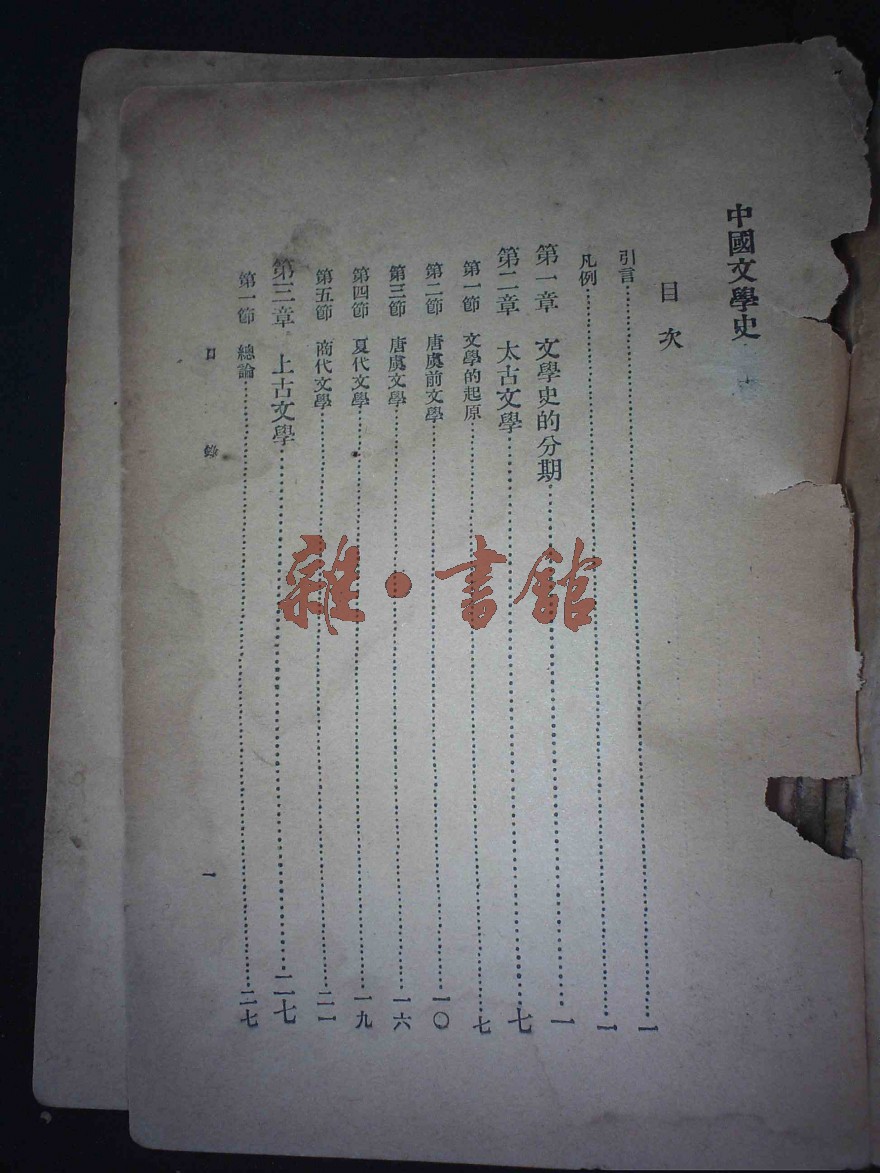 中國文學史
目次
引言……一
凡例……一
第一章 文學史的分期……一
第二章 太古文學……七
第一節 文學的起原……七
第二節 唐虞前文學……一〇
第三節 唐虞文學……一六
第四節 夏代文學……一九
第五節 商代文學……二一
第三章 上古文學……二七
第一節 總論……二七
目錄
一
雜·書館